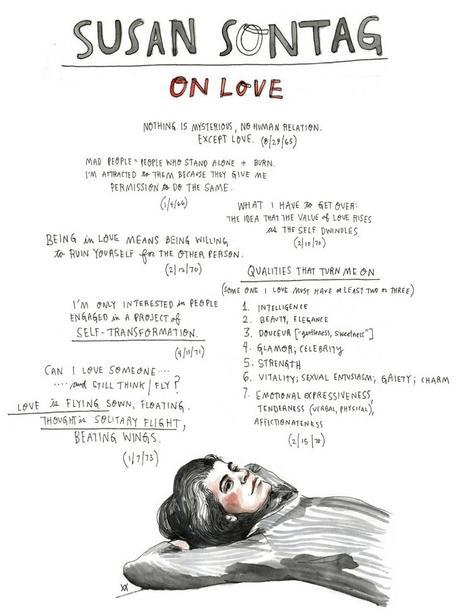 SUSAN SONTAG
ON LOVE
NOTHING IS MYSTERIOUS, NO HUMAN RELATION.
EXCEPT LOVE. (8/29/65)
MAD PEOPLE = PEOPLE WHO STAND ALONE + BURN.
I'M ATTRACTED to THEM BECAUSE THEY GIVE ME
PERMISSION to DO THE SAME.
(1/4/66)
WHAT I HAVE to GET OVER:
THE IDEA THAT THE VALUE OF LOVE RISES
as THE SELF DWINDLES.
(2/10/70)
BEING in LOVE MEANS BEING WILLING
to RUIN YOURSELF for THE OTHER PERSON.
(2/12/70)
QUALITIES THAT TURN ME ON
(SOME ONE I LOVE MUST HAVE at LEAST TWO or THREE)
1. INTELLIGENCE
2. BEAUTY, ELEGANCE
3. DOUCEUR ["gentleness, sweetness"]
4. GLAMOR; CELEBRITY
5. STRENGTH
6. VITALITY; SEXUAL ENTUSIASM; GAIETY; CHARM
7. EMOTIONAL EXPRESSIVENESS,
TENDERNESS (VERBAL, PHYSICAL),
AFFECTIONATENESS
(2/15/70)
I'M ONLY INTERESTED in PEOPLE
ENGAGED in A PROJECT of
SELF-TRANSFORMATION.
(4/11/71)
CAN I LOVE SOMEONE....
.....and STILL THINK/FLY?
LOVE is FLYING SOWN, FLOATING.
THOUGHT is SOLITARY FLIGHT,
BEATING WINGS.
(1/7/73)